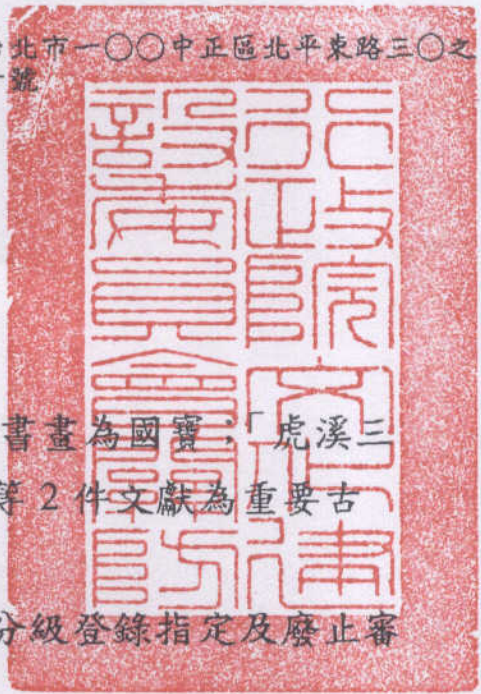 北市一○○中正區北平東路三○之
號
行政院文化建
設委員會關防
書畫為國寶；「虎溪三
等 2 件文獻為重要古
分級登錄指定及廢止審